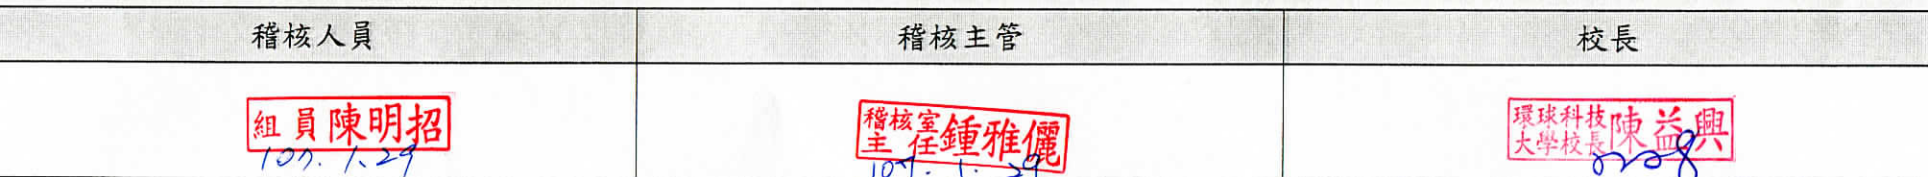 稽核人員
稽核主管
校長
組員陳明招
107. 1. 29
稽核室主任鍾雅儷
107. 1. 29
環球科技大學校長陳益興